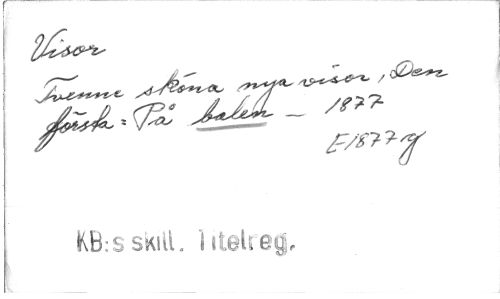 Visor
Tvenne sköna nya visor, Den
första: På balen – 1877
E1877g
KB:s skill. Titelreg.